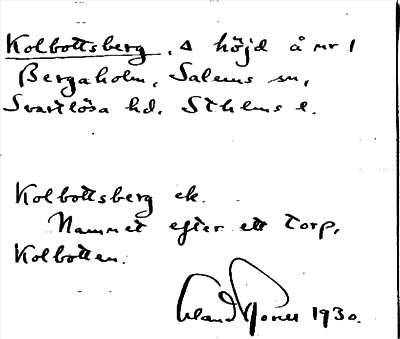 Kolbottsberg, Δ höjd å nr 1
Bergaholm, Salems sn,
Svartlösa hd. Sthlms l.
Kolbottsberg ek.
Namnet efter ett torp,
Kolbotten.
Erland 1930.